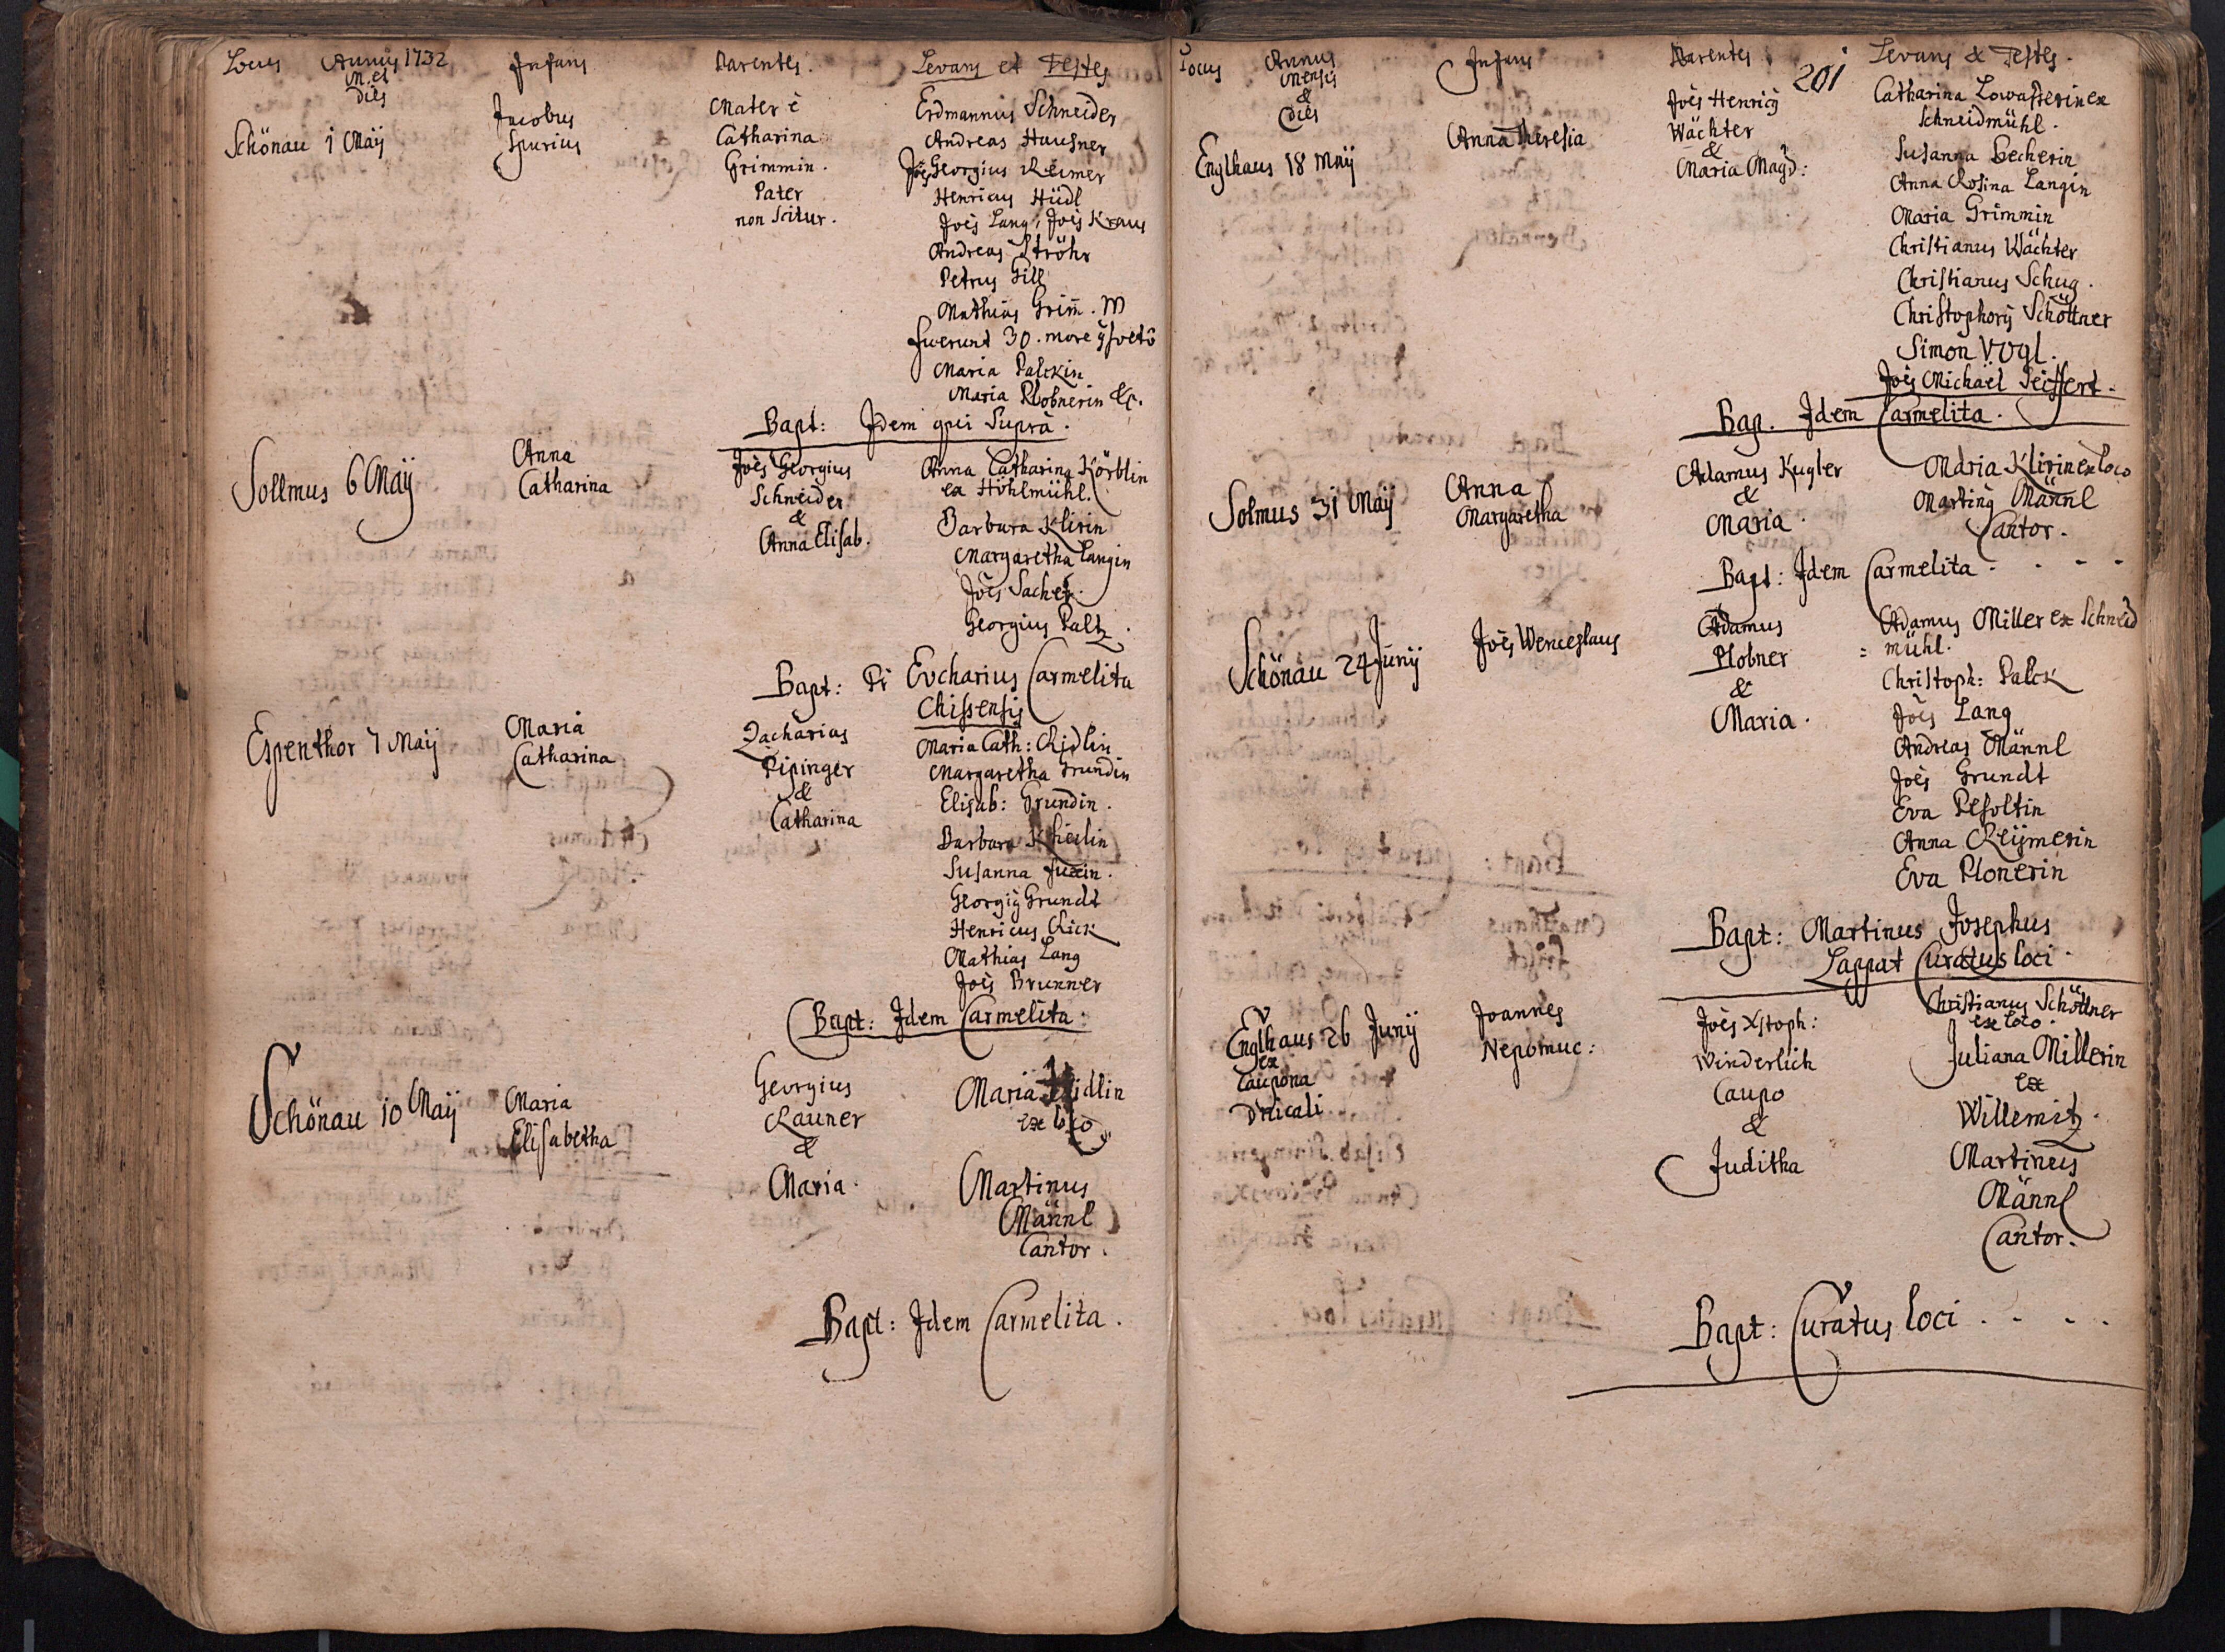 Locus Annus 1732 Infans Parentes. Levans et Testes
M. et
dies
Schönau 1 Maij
Jacobus
Spurius
Mater è
Catharina
Grimmin.
Pater
non scitur.
Erdmannus Schneider
Andreas Hausner
Joës Georgius Reimer
Henricus Hüdl
Joës Lang, Joës Kraus
Andreas Ströhr
Petrus Gill
Mathias Grim̄. M
fuerunt 30. more
Maria Palckin
Maria Plobnerin &c.
Bapt: Idem qui Suprà.
Sollmus 6 Maij
Anna
Catharina
Joës Georgius
Schneider
&
Anna Elisab.
Anna Catharina Körblin
ex Höhlmühl.
Barbara Klirin
Margaretha Langin
Joës Sacher.
Georgius Paltz.
Bapt: Pr Eucharius Carmelita
Chissensis
Espenthor 7 Maij
Maria
Catharina
Zacharias
Pipinger
&
Catharina
Maria Cath: Ridlin
Margaretha Grundin
Elisab: Grundin.
Barbara
Susanna Fuxin.
Georgig Grundt
Henricus Rick
Mathias Lang
Joës Brunner
Bapt: Idem Carmelita.
Schönau 10 Maij
Maria
Elisabetha
Georgius
Launer
&
Maria.
Maria
ex loco
Martinus
Männl
Cantor.
Bapt: Idem Carmelita.
Locus Annus Infans Parentes 201 Levans & Testes.
Mensis
&
Dies
Englhaus 18 Maij
Anna Theresia
Joës Henricg
Wächter
&
Maria Magd:
Catharina Lowasserin ex
Schneidmühl.
Susanna Becherin
Anna Rosina Langin
Maria Grimmin
Christianus Wächter
Christianus Schug.
Christophorg Schöttner
Simon Vogl.
Joës Michael Seiffert.
Bap. Idem Carmelita.
Solmus 31 Maij
Anna
Margaretha
Adamus Kugler
&
Maria.
Maria Klirin ex loco
Marting Männl
Cantor.
Bapt: Idem Carmelita. . - -
Schönau 24 Junij
Joës Wenceslaus
Adamus
Plobner
&
Maria.
Adamus Miller ex Schneid
= mühl.
Christoph: Palck
Joës Lang
Andreas Männl
Joës Grundt
Eva Pesoltin
Anna Reijmerin
Eva Plonerin
Bapt: Martinus Josephus
Lappat Curatus loci.
Englhaus 26 Junij
ex
Caupona
Joannes
Nepomuc:
Joës Xstoph:
Winderlich
Caupo
&
Juditha
Christianus Schöttner
ex loco.
Juliana Millerin
ex
Willemitz.
Martinus
Männl
Cantor.
Bapt: Curatus loci . . - .